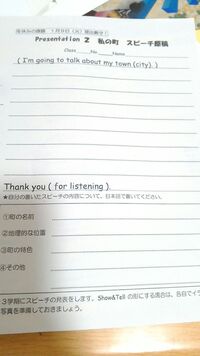 冬休みの課題 1月8日(火)提出厳守!
Presentation 2 私の町 スピーチ原稿
Class No. Name
( I'm going to talk about my town (city). )
Thank you ( for listening ).
★自分の書いたスピーチの内容について、日本語で書いてください。
①町の名前
②地理的な位置
③町の特色
④その他
3学期にスピーチの発表をします。Show&Tell の形にする場合は、各自でイラ
写真を準備しておきましょう。